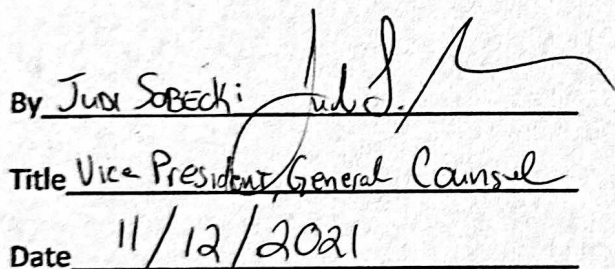 By Judi Sobecki Judi S.
Title Vice President, General Counsel
Date 11/12/2021